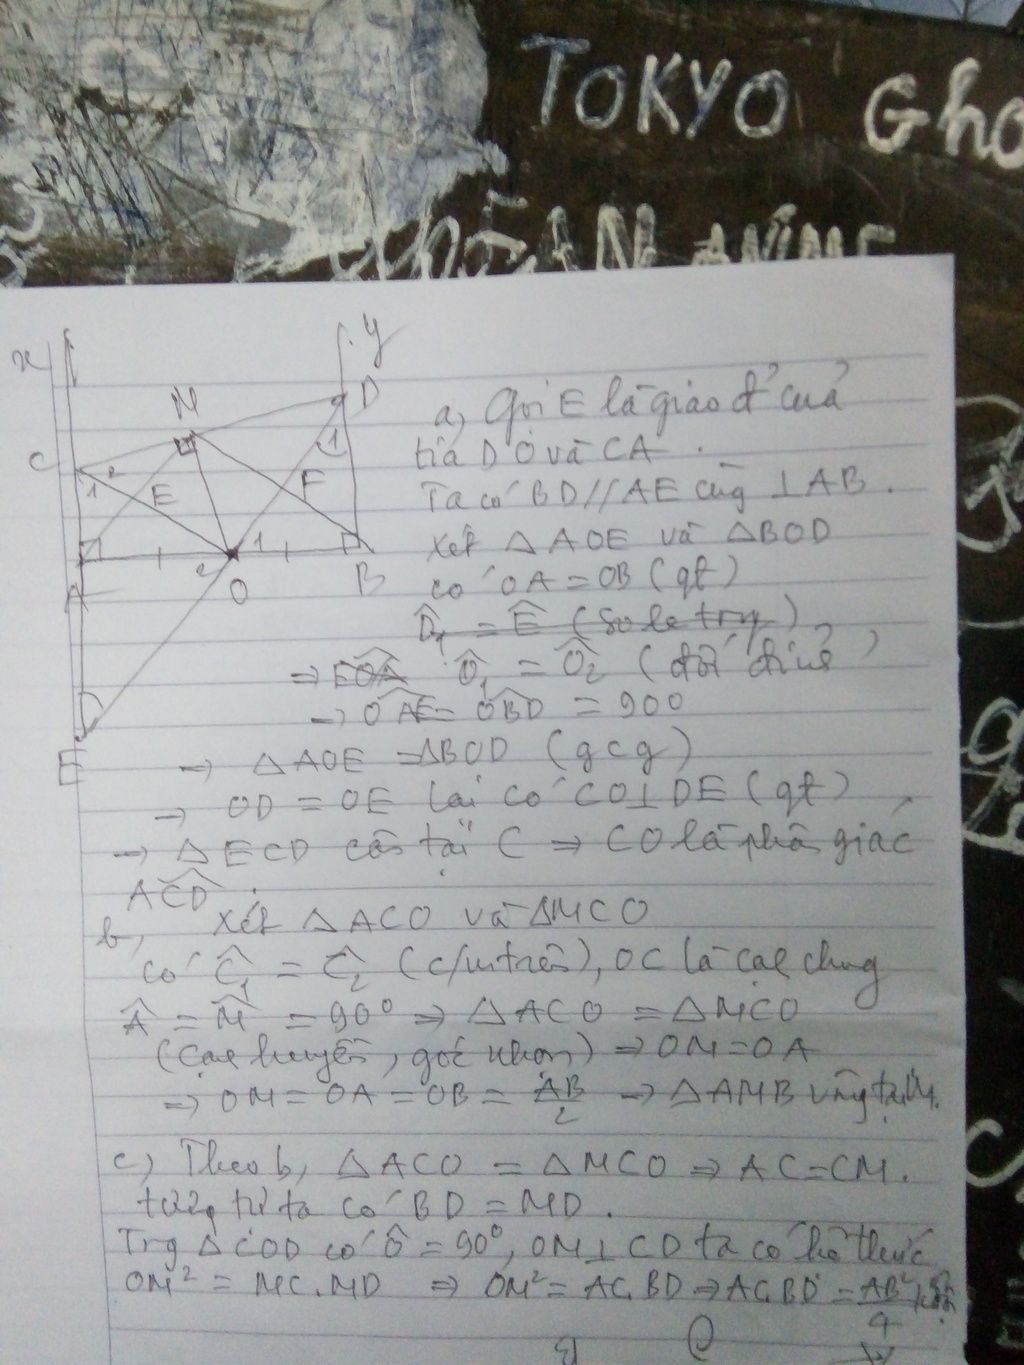 TOKYO Gho
x
y
M
D
C
2
1
1
E
F
1
2
A
O
B
E
a, Gọi E là giao đ' của
tia DO và CA.
Ta có BD // AE cùng ⊥ AB.
xét △AOE và △BOD
có OA = OB (gt)
D̂₁ = Ê (so le trg)
⇒ EOA Ô₁ = Ô₂ (đối đỉnh)
→ OAE = OBD = 90°
→ △AOE = △BOD (gcg)
→ OD = OE lại có CO ⊥ DE (gt)
→ △ECD cân tại C ⇒ CO là phân giác
ACD.
b, Xét △ACO và △MCO
có Ĉ₁ = Ĉ₂ (c/m trên), OC là cạh chung
Â = M̂ = 90° ⇒ △ACO = △MCO
(cạh huyền, góc nhọn) ⇒ OM = OA
→ OM = OA = OB = AB/2 → △AMB vuông tại M.
c) Theo b, △ACO = △MCO ⇒ AC = CM.
tương tự ta có BD = MD.
Trg △COD có Ô = 90°, OM ⊥ CD ta có hệ thức
OM² = MC.MD ⇒ OM² = AC.BD ⇒ AC.BD = AB²/4